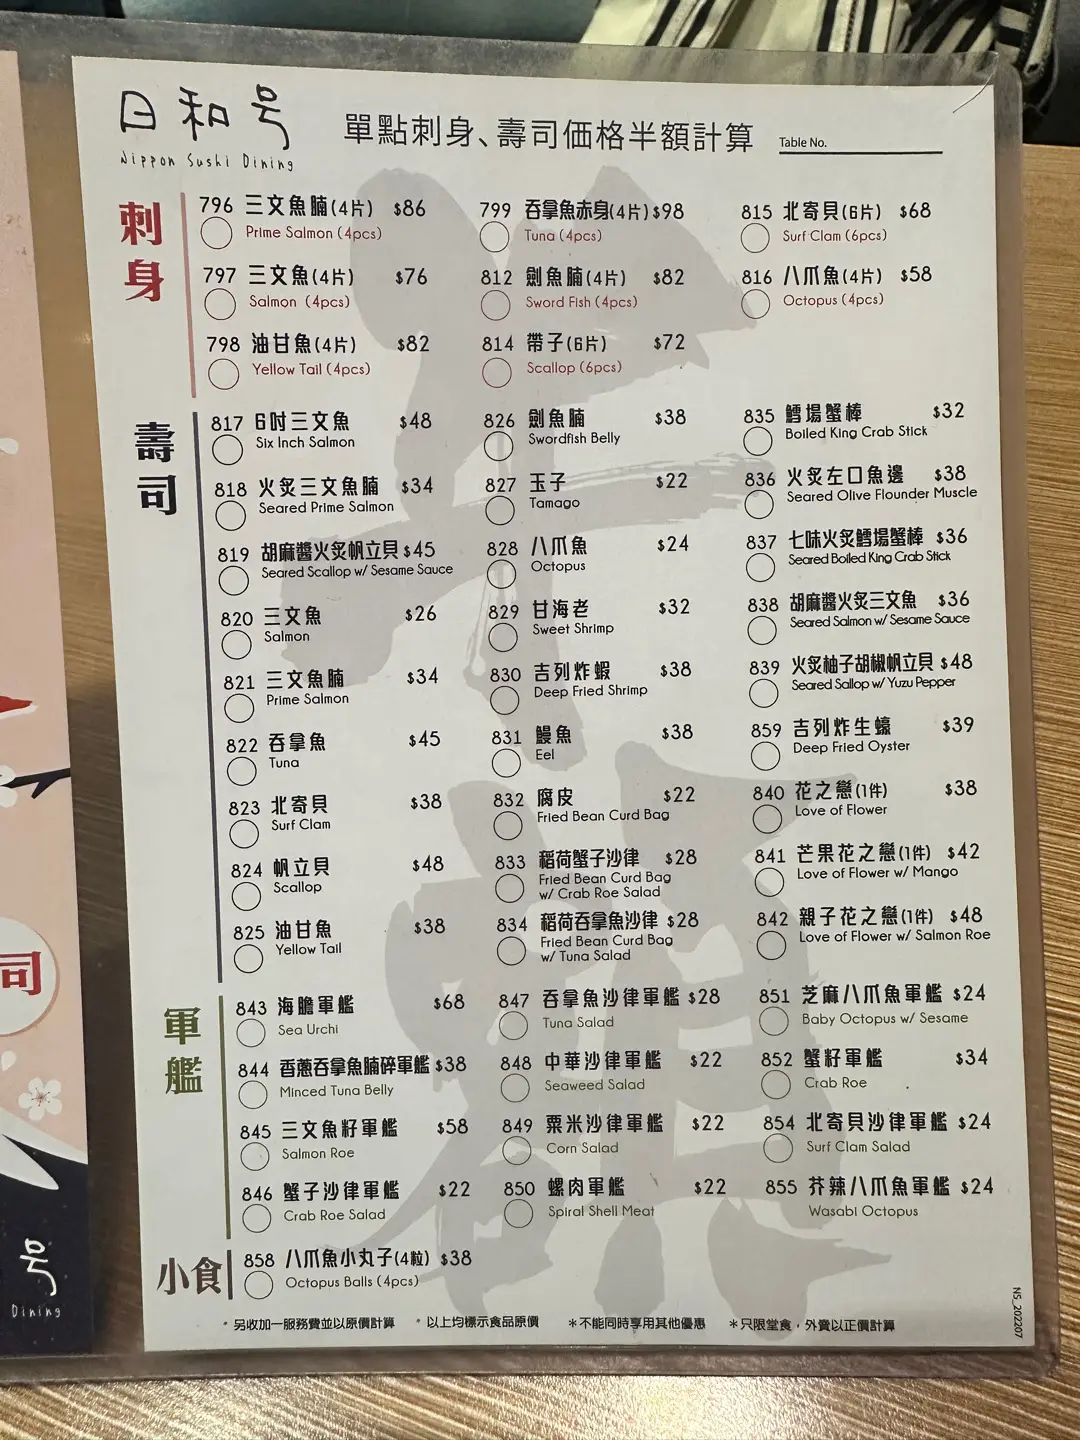 日和号
Nippon Sushi Dining
單點刺身、壽司価格半額計算
Table No.
刺身
796 三文魚腩(4片) $86
Prime Salmon (4pcs)
799 吞拿魚赤身(4片) $98
Tuna (4pcs)
815 北寄貝(6片) $68
Surf Clam (6pcs)
797 三文魚(4片) $76
Salmon (4pcs)
812 劍魚腩(4片) $82
Sword Fish (4pcs)
816 八爪魚(4片) $58
Octopus (4pcs)
798 油甘魚(4片) $82
Yellow Tail (4pcs)
814 帶子(6片) $72
Scallop (6pcs)
壽司
817 6吋三文魚 $48
Six Inch Salmon
826 劍魚腩 $38
Swordfish Belly
835 鱈場蟹棒 $32
Boiled King Crab Stick
818 火炙三文魚腩 $34
Seared Prime Salmon
827 玉子 $22
Tamago
836 火炙左口魚邊 $38
Seared Olive Flounder Muscle
819 胡麻醬火炙帆立貝 $45
Seared Scallop w/ Sesame Sauce
828 八爪魚 $24
Octopus
837 七味火炙鱈場蟹棒 $36
Seared Boiled King Crab Stick
820 三文魚 $26
Salmon
829 甘海老 $32
Sweet Shrimp
838 胡麻醬火炙三文魚 $36
Seared Salmon w/ Sesame Sauce
821 三文魚腩 $34
Prime Salmon
830 吉列炸蝦 $38
Deep Fried Shrimp
839 火炙柚子胡椒帆立貝 $48
Seared Sallop w/ Yuzu Pepper
822 吞拿魚 $45
Tuna
831 鰻魚 $38
Eel
859 吉列炸生蠔 $39
Deep Fried Oyster
823 北寄貝 $38
Surf Clam
832 腐皮 $22
Fried Bean Curd Bag
840 花之戀(1件) $38
Love of Flower
824 帆立貝 $48
Scallop
833 稻荷蟹子沙律 $28
Fried Bean Curd Bag
w/ Crab Roe Salad
841 芒果花之戀(1件) $42
Love of Flower w/ Mango
825 油甘魚 $38
Yellow Tail
834 稻荷吞拿魚沙律 $28
Fried Bean Curd Bag
w/ Tuna Salad
842 親子花之戀(1件) $48
Love of Flower w/ Salmon Roe
軍艦
843 海膽軍艦 $68
Sea Urchi
847 吞拿魚沙律軍艦 $28
Tuna Salad
851 芝麻八爪魚軍艦 $24
Baby Octopus w/ Sesame
844 香蔥吞拿魚腩碎軍艦 $38
Minced Tuna Belly
848 中華沙律軍艦 $22
Seaweed Salad
852 蟹籽軍艦 $34
Crab Roe
845 三文魚籽軍艦 $58
Salmon Roe
849 粟米沙律軍艦 $22
Corn Salad
854 北寄貝沙律軍艦 $24
Surf Clam Salad
846 蟹子沙律軍艦 $22
Crab Roe Salad
850 螺肉軍艦 $22
Spiral Shell Meat
855 芥辣八爪魚軍艦 $24
Wasabi Octopus
小食
858 八爪魚小丸子(4粒) $38
Octopus Balls (4pcs)
* 另收加一服務費並以原價計算 * 以上均標示食品原價 *不能同時享用其他優惠 *只限堂食，外賣以正價計算
NS_202207
司
号
Dining